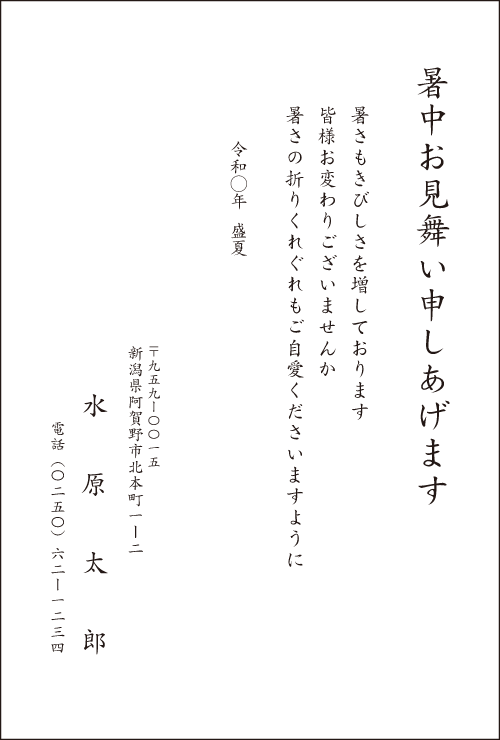 暑中お見舞い申しあげます
暑さもきびしさを増しております
皆様お変わりございませんか
暑さの折りくれぐれもご自愛くださいますように
令和〇年　盛夏
〒九五九ー〇〇一五
新潟県阿賀野市北本町一ー二
水原太郎
電話（〇二五〇）六二ー一二三四